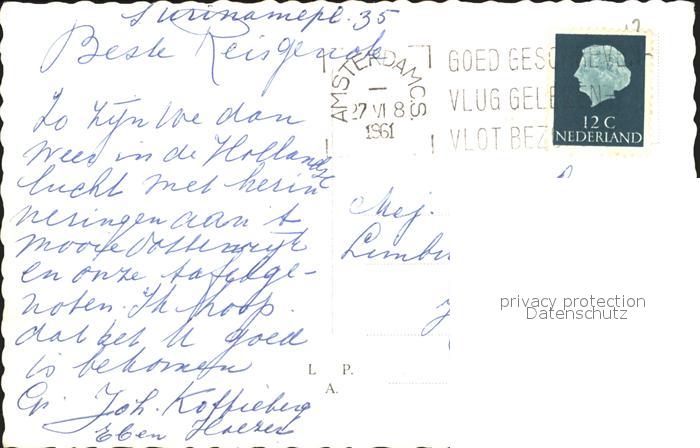 Surinamepl. 35
Beste Reisgenote
Zo zijn we dan
weer in de Hollandse
lucht met herin
neringen aan 't
mooie Oostenrijk
en onze tafelge-
noten. Ik hoop
dat het U goed
is bekomen
Gr. Joh. Koffieberg
AMSTERDAM C.S.
27 VI 8
1961
GOED GESC
VLUG GELE
VLOT BEZ
12 C
NEDERLAND
Mej.
Limbu
L. P.
A.
privacy protection
Datenschutz